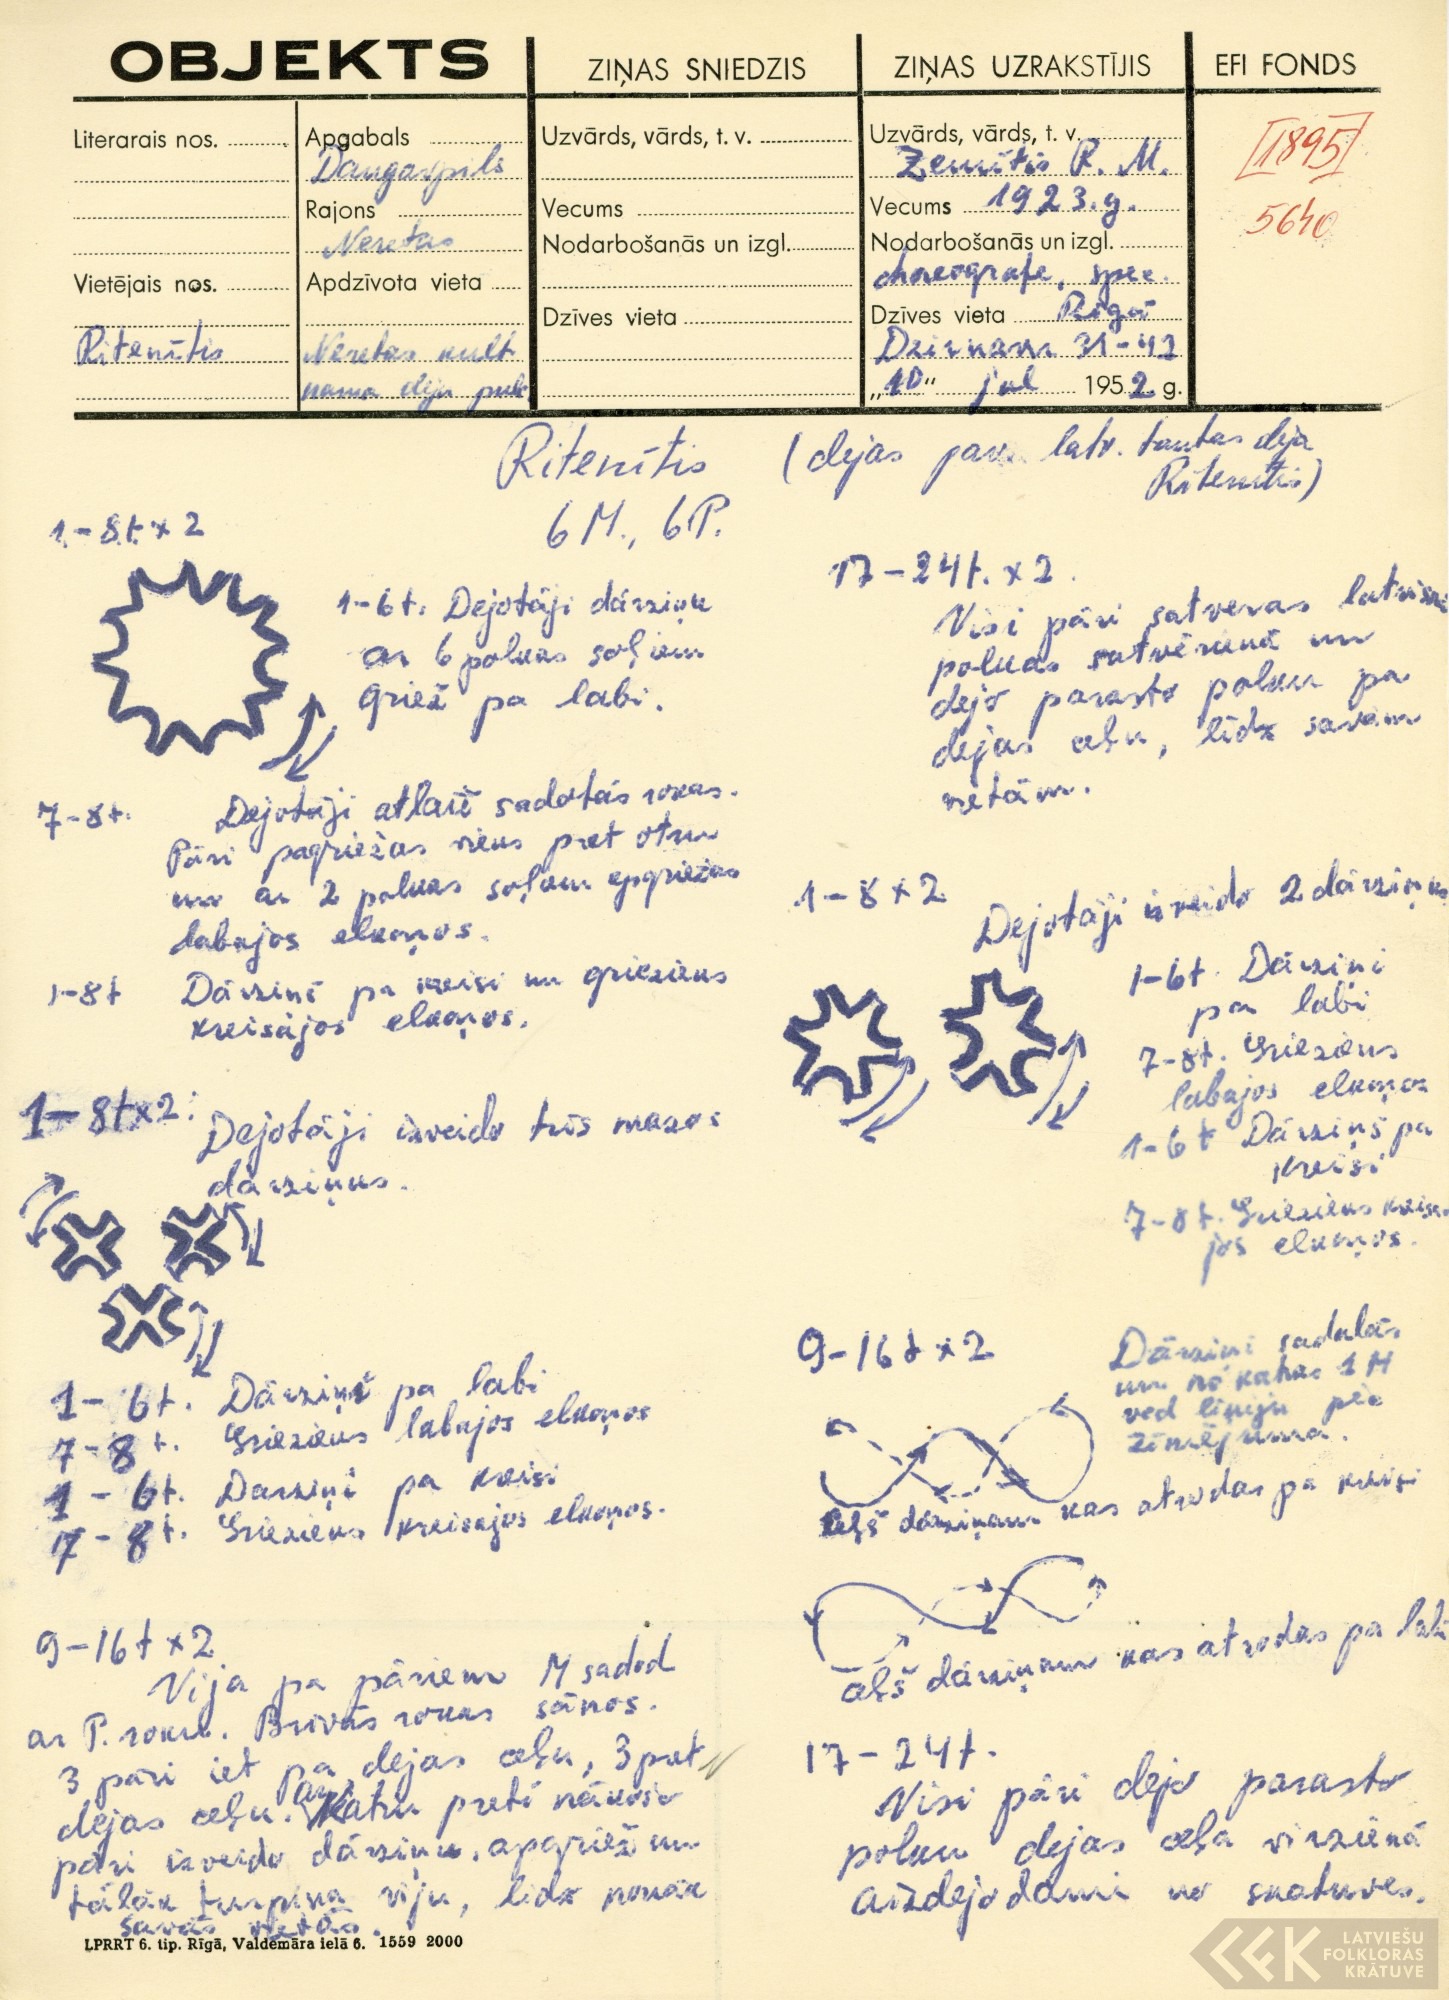 OBJEKTS
ZIŅAS SNIEDZIS
ZIŅAS UZRAKSTĪJIS
EFI FONDS
Literarais nos.
Vietējais nos.
Ritenītis
Apgabals
Daugavpils
Rajons
Neretas
Apdzīvota vieta
Neretas kult
nama deju pulc
Uzvārds, vārds, t. v.
Vecums
Nodarbošanās un izgl.
Dzīves vieta
Uzvārds, vārds, t. v.
Zemītis R. M.
Vecums 1923.g.
Nodarbošanās un izgl.
choreografe, spec.
Dzīves vieta Rīgā
Dzirnavu 31-42
„10" jul 1952 g.
[1895]
5640
Ritenītis (dejas pav. latv. tautas deja
Ritenītis)
6 M., 6 P.
1-8t. x 2
1-6t. Dejotāji dārziņu
ar 6 polkas soļiem
griež pa labi.
7-8t. Dejotāji atlaiž sadotās rokas.
Pāri pagriežas viens pret otru
un ar 2 polkas soļiem apgriežas
labajos elkoņos.
1-8t Dārziņš pa kreisi un grieziens
kreisajos elkoņos.
1-8t x 2: Dejotāji izveido trīs mazos
dārziņus.
1-6t. Dārziņi pa labi
7-8t. Grieziens labajos elkoņos
1-6t. Darziņi pa kreisi
7-8t. Grieziens kreisajos elkoņos.
9-16t x 2
Vija pa pāriem M sadod
ar P. roku. Brīvās rokas sānos.
3 pāri iet pa dejas ceļu, 3 pret
dejas ceļu. ar Katru pretī nākošo
pāri izveido dārziņu, apgriež un
tālāk turpina viju, līdz nonāk
savās vietās.
17-24t. x 2.
Visi pāri satveras latviskā
polkas satvērienā un
dejo parasto polku pa
dejas ceļu, līdz savām
vietām.
1-8 x 2 Dejotāji izveido 2 dārziņus
1-6t. Dārziņi
pa labi
7-8t. Grieziens
labajos elkoņos
1-6t Dārziņš pa
kreisi
7-8t. Grieziens kreisa-
jos elkoņos.
9-16t x 2
Dārziņi sadalās
un no katras 1 M
ved līniju pēc
zīmējuma.
ceļš dārziņam kas atrodas pa kreisi
ceļš dārziņam kas atrodas pa labi
17-24t.
Visi pāri dejo parasto
polku dejas ceļa virzienā
aizdejodami no skatuves.
LPRRT 6. tip. Rīgā, Valdemāra ielā 6. 1559 2000
LATVIEŠU
FOLKLORAS
KRĀTUVE